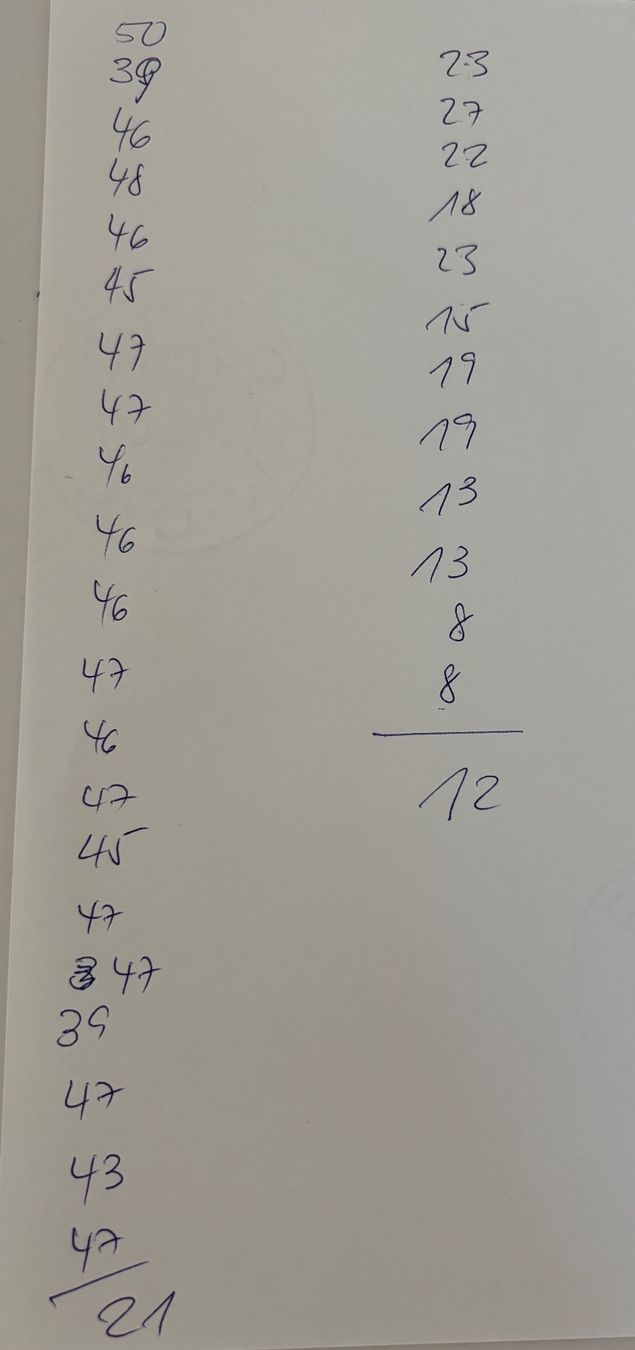 50
39
46
48
46
45
47
47
46
46
46
47
46
47
45
47
47
39
47
43
47
21
23
27
22
18
23
15
19
19
13
13
8
8
12